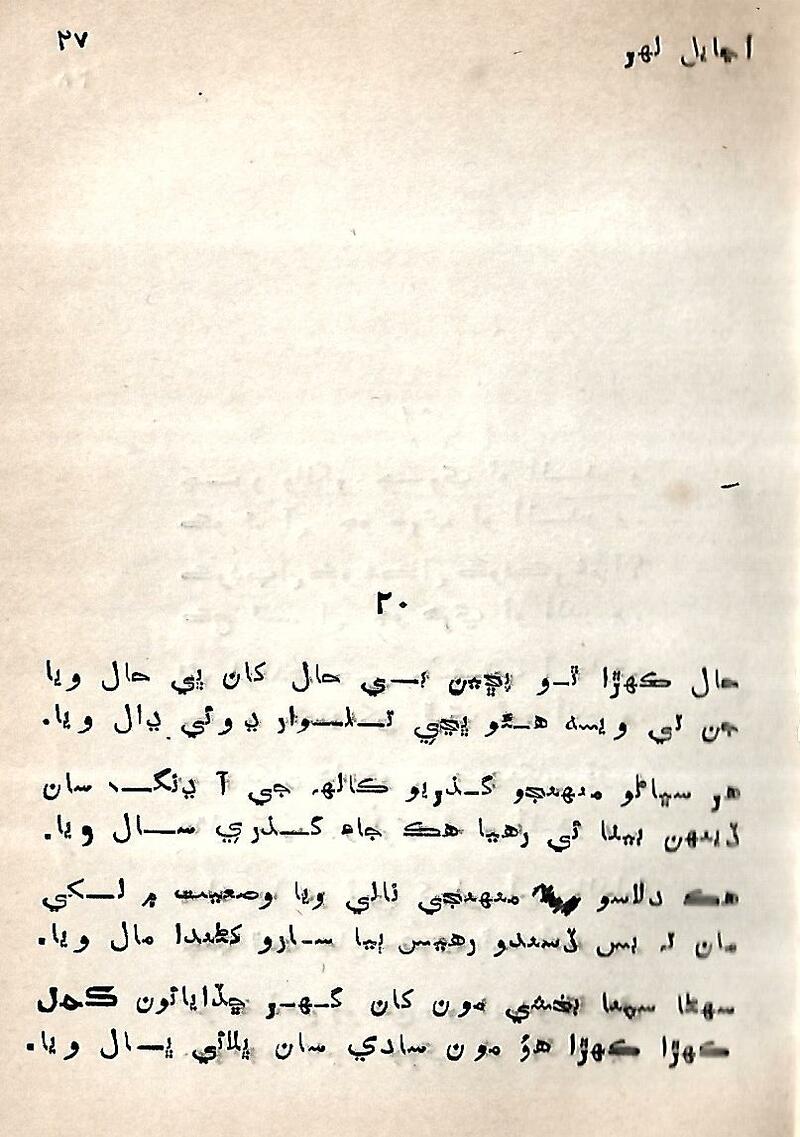 اڃايل لهر
۲۷
۲۰
حال ڪهڙا ٿو پڇين بي حال کان ڀي حال ويا
جن تي ويسه هئو ڀڃي تلوار ڊوئي ڍال ويا.
هر سياڻو منهنجو گذريو ڪالهه جي آ ڊنگ سان
ڏينهن بيٺا ئي رهيا هڪ جاهه گذري سال ويا.
هڪ دلاسو منهنجي نالي ويا وصعيت ۾ لکي
مان ته بس ڏسندو رهيس ٻيا سارو کڻندا مال ويا.
سهڻا سپنا بخشي مون کان گهر ڇڏايائون
ڪهڙا ڪهڙا هؤ مون سادي سان ڀلائي ڀال ويا.